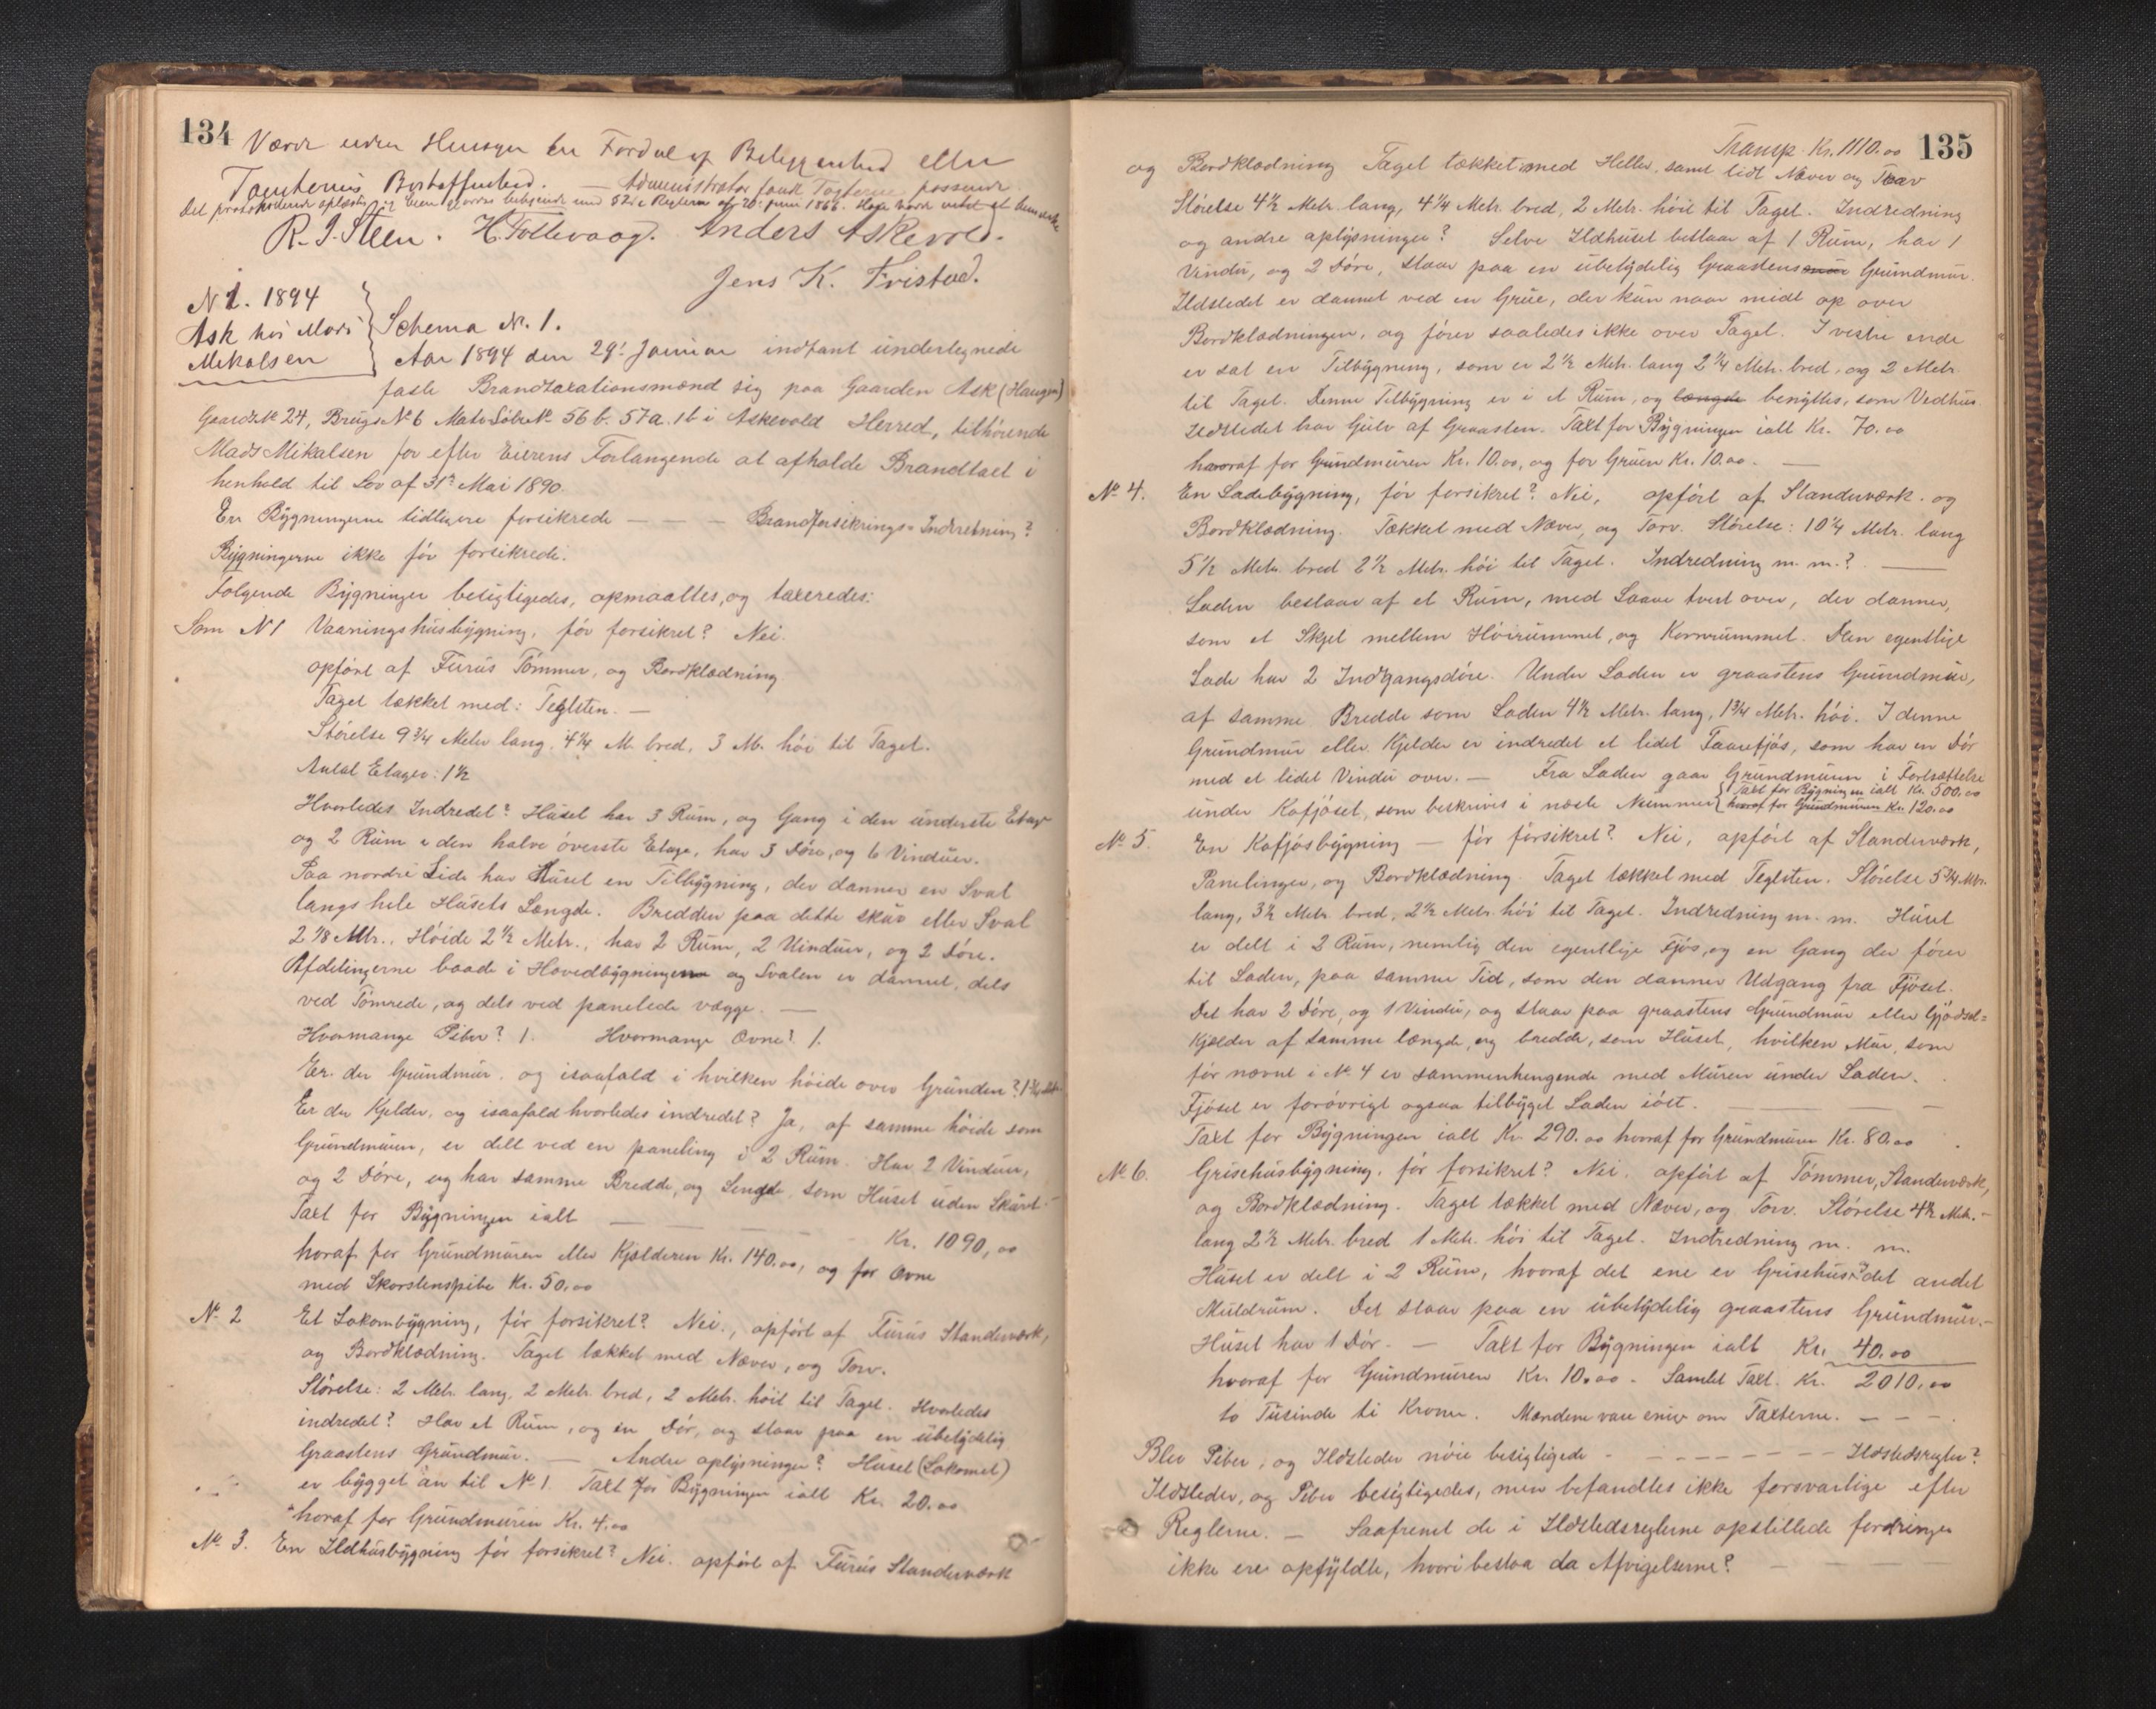 134
Værdi uden Hensyn til Fordel af Beliggenhed eller
Tomternes Beskaffenhed. — Administrator fandt Taxterne passende
Det protokollerede oplæst
R. J. Steen. H. Tollevaag. Anders Askevold.
Jens K. Fristad.
N 1. 1894
Ask hos Mads
Mikalsen
Schema No. 1.
Aar 1894 den 29' Januar indfant undertegnede
faste Brandtaxationsmænd sig paa Gaarden Ask (Haugen)
Gaards No 24, Brugs No 6 Mats Løbe No 56 b. 57a. 1b i Askevold Herred, tilhørende
Mads Mikalsen for efter Eierens Forlangende at afholde Brandtaxt i
henhold til Lov af 31te Mai 1890.
Er Bygningerne tidligere forsikrede — — — Brandforsikrings-Indretning?
Bygningerne ikke før forsikrede.
Følgende Bygninger besigtigedes, opmaaltes, og taxeredes:
Som N 1 Vaaningshusbygning, før forsikret? Nei.
opført af Furus Tømmer, og Bordklædning
Taget tækket med: Teglsten. —
Størelse 9 3/4 Meter lang, 4 1/4 M. bred, 3 M. høi til Taget.
Antal Etager: 1 1/2
Hvorledes Indredet? Huset har 3 Rum, og Gang i den underste Etage
og 2 Rum i den halve øverste Etage, har 3 Døre, og 6 Vinduer.
Paa nordre Side har Huset en Tilbygning, der danner en Sval
langs hele Husets Længde. Bredden paa dette skur eller Sval
2 1/8 Mtr., Høide 2 1/2 Metr., har 2 Rum, 2 Vinduer, og 2 Døre.
Afdelingerne baade i Hovedbygningerne og Svalen er dannet, dels
ved Tømrede, og dels ved panelede vægge. —
Hvormange Piber? 1. Hvormange Ovne? 1.
Er der Grundmur, og isaafald i hvilken høide over Grunden? 1 3/4 Mtr.
Er der Kjelder, og isaafald hvorledes indredet? Ja, af samme høide som
Grundmuren, er delt ved en paneling i 2 Rum. Har 2 Vinduer,
og 2 Døre, og har samme Bredde, og Længde, som Huset uden Skuret.
Taxt for Bygningen ialt — — Kr. 1090,00
horaf for Grundmuren eller Kjælderen Kr. 140.00, og for Ovne
med Skorstenspibe Kr. 50.00
No. 2 Et Lokombygning, før forsikret? Nei., opført af Furus Standerværk,
og Bordklædning. Taget tækket med Næver, og Torv.
Størelse: 2 Metr. lang, 2 Metr. bred, 2 Metr. høit til Taget. Hvorledes
indredet? Har et Rum, og en Dør, og staar paa en ubetydelig
Graastens Grundmur. — Andre oplysninger? Huset (Lokomet)
er bygget an til No 1. Taxt for Bygningen ialt Kr. 20.00
horaf for Grundmuren Kr. 4.00
No. 3. En Ildhusbygning før forsikret? Nei. opført af Furus Standerværk
135
Transp. Kr. 1110.00
og Bordklædning Taget tækket med Heller, samt lidt Næver og Torv
Störelse 4 1/2 Metr. lang, 4 1/4 Metr. bred, 2 Metr. høit til Taget. Indredning
og andre oplysninger? Selve Ildhuset bestaar af 1 Rum, har 1
Vindu, og 2 Døre, staar paa en ubetydelig Graastens Grundmur.
Ildstedet er dannet ved en Grue, der kun naar midt op over
Bordklædningen, og fører saaledes ikke over Taget. I vestre ende
er sat en Tilbygning, som er 2 1/2 Metr. lang 2 1/4 Metr. bred, og 2 Metr.
til Taget. Denne Tilbygning er i et Rum, og længde benyttes, som Vedhus.
Ildstedet har Gulv af Graasten. Taxt for Bygningen ialt Kr. 70.00
hvoraf for Grundmuren Kr. 10.00, og for Gruen Kr. 10.00. —
No. 4. En Ladebygning, før forsikret? Nei, opført af Standerværk og
Bordklædning. Tækket med Næver, og Torv. Størelse: 10 1/4 Metr. lang
5 1/2 Metr. bred 2 1/2 Metr. høi til Taget. Indredning m. m.? —
Laden bestaar af et Rum, med Laave tvert over, der danner,
som et Skjel mellem Høirummet, og Kornrummet. Den egentlige
Lade har 2 Indgangsdøre. Under Laden er graastens Grundmur,
af samme Bredde som Laden 4 1/2 Metr. lang, 1 3/4 Metr. høi. I denne
Grundmur eller Kjelder er indredet et lidet Faarefjøs, som har en Dør
med et lidet Vindu over. — Fra Laden gaar Grundmuren i Fortsættelse
under Kofjøset, som beskrives i næste Nummer { Taxt for Bygningen ialt Kr. 500.00
hvoraf for Grundmuren Kr. 120.00
No. 5. En Kofjøsbygning — før forsikret? Nei, opført af Standerværk,
Panelinger, og Bordklædning. Taget tækket med Teglsten. Størelse 5 3/4 Mtr.
lang, 3 1/2 Metr. bred, 2 1/2 Metr. høi til Taget. Indredning m. m. Huset
er delt i 2 Rum, nemlig den egentlige Fjøs, og en Gang der fører
til Laden, paa samme Tid, som den danner Udgang fra Fjøset.
Det har 2 Døre, og 1 Vindu, og staar paa graastens Grundmur eller Gjødsel=
Kjelder af samme længde, og bredde, som Huset, hvilken Mur, som
før nævnt i No. 4 er sammenhengende med Muren under Laden.
Fjøset er forøvrigt ogsaa tilbyget Laden iøst. — — —
Taxt for Bygningen ialt Kr. 290.00 hvoraf for Grundmuren Kr. 80.00
No. 6. Grisehusbygning, før forsikret? Nei. opført af Tømmer, Standerværk,
og Bordklædning. Taget tækket med Næver, og Torv. Størelse 4 1/2 Metr.
lang 2 1/2 Metr. bred 1 Metr. høi til Taget. Indredning m. m.
Huset er delt i 2 Rum, hvoraf det ene er Grisehus, og det andet
Muldrum. Det staar paa en ubetydelig graastens Grundmur.
Huset har 1 Dør. — Taxt for Bygningen ialt Kr. 40.00
hvoraf for Grundmuren Kr. 10.00. Samlet Taxt. Kr. 2010.00
to Tusinde ti Kroner. Mændene vare enige om Taxterne. — — —
Blev Piber, og Ildsteder nøie besigtigede — — — — — Ildstedsregler?
Ildsteder, og Piber besigtigedes, men befandtes ikke forsvarlige efter
Reglerne. — Saafremt de i Ildstedsreglerne opstillede fordringer
ikke ere opfyldte, hvori bestaa da Afvigelserne? —